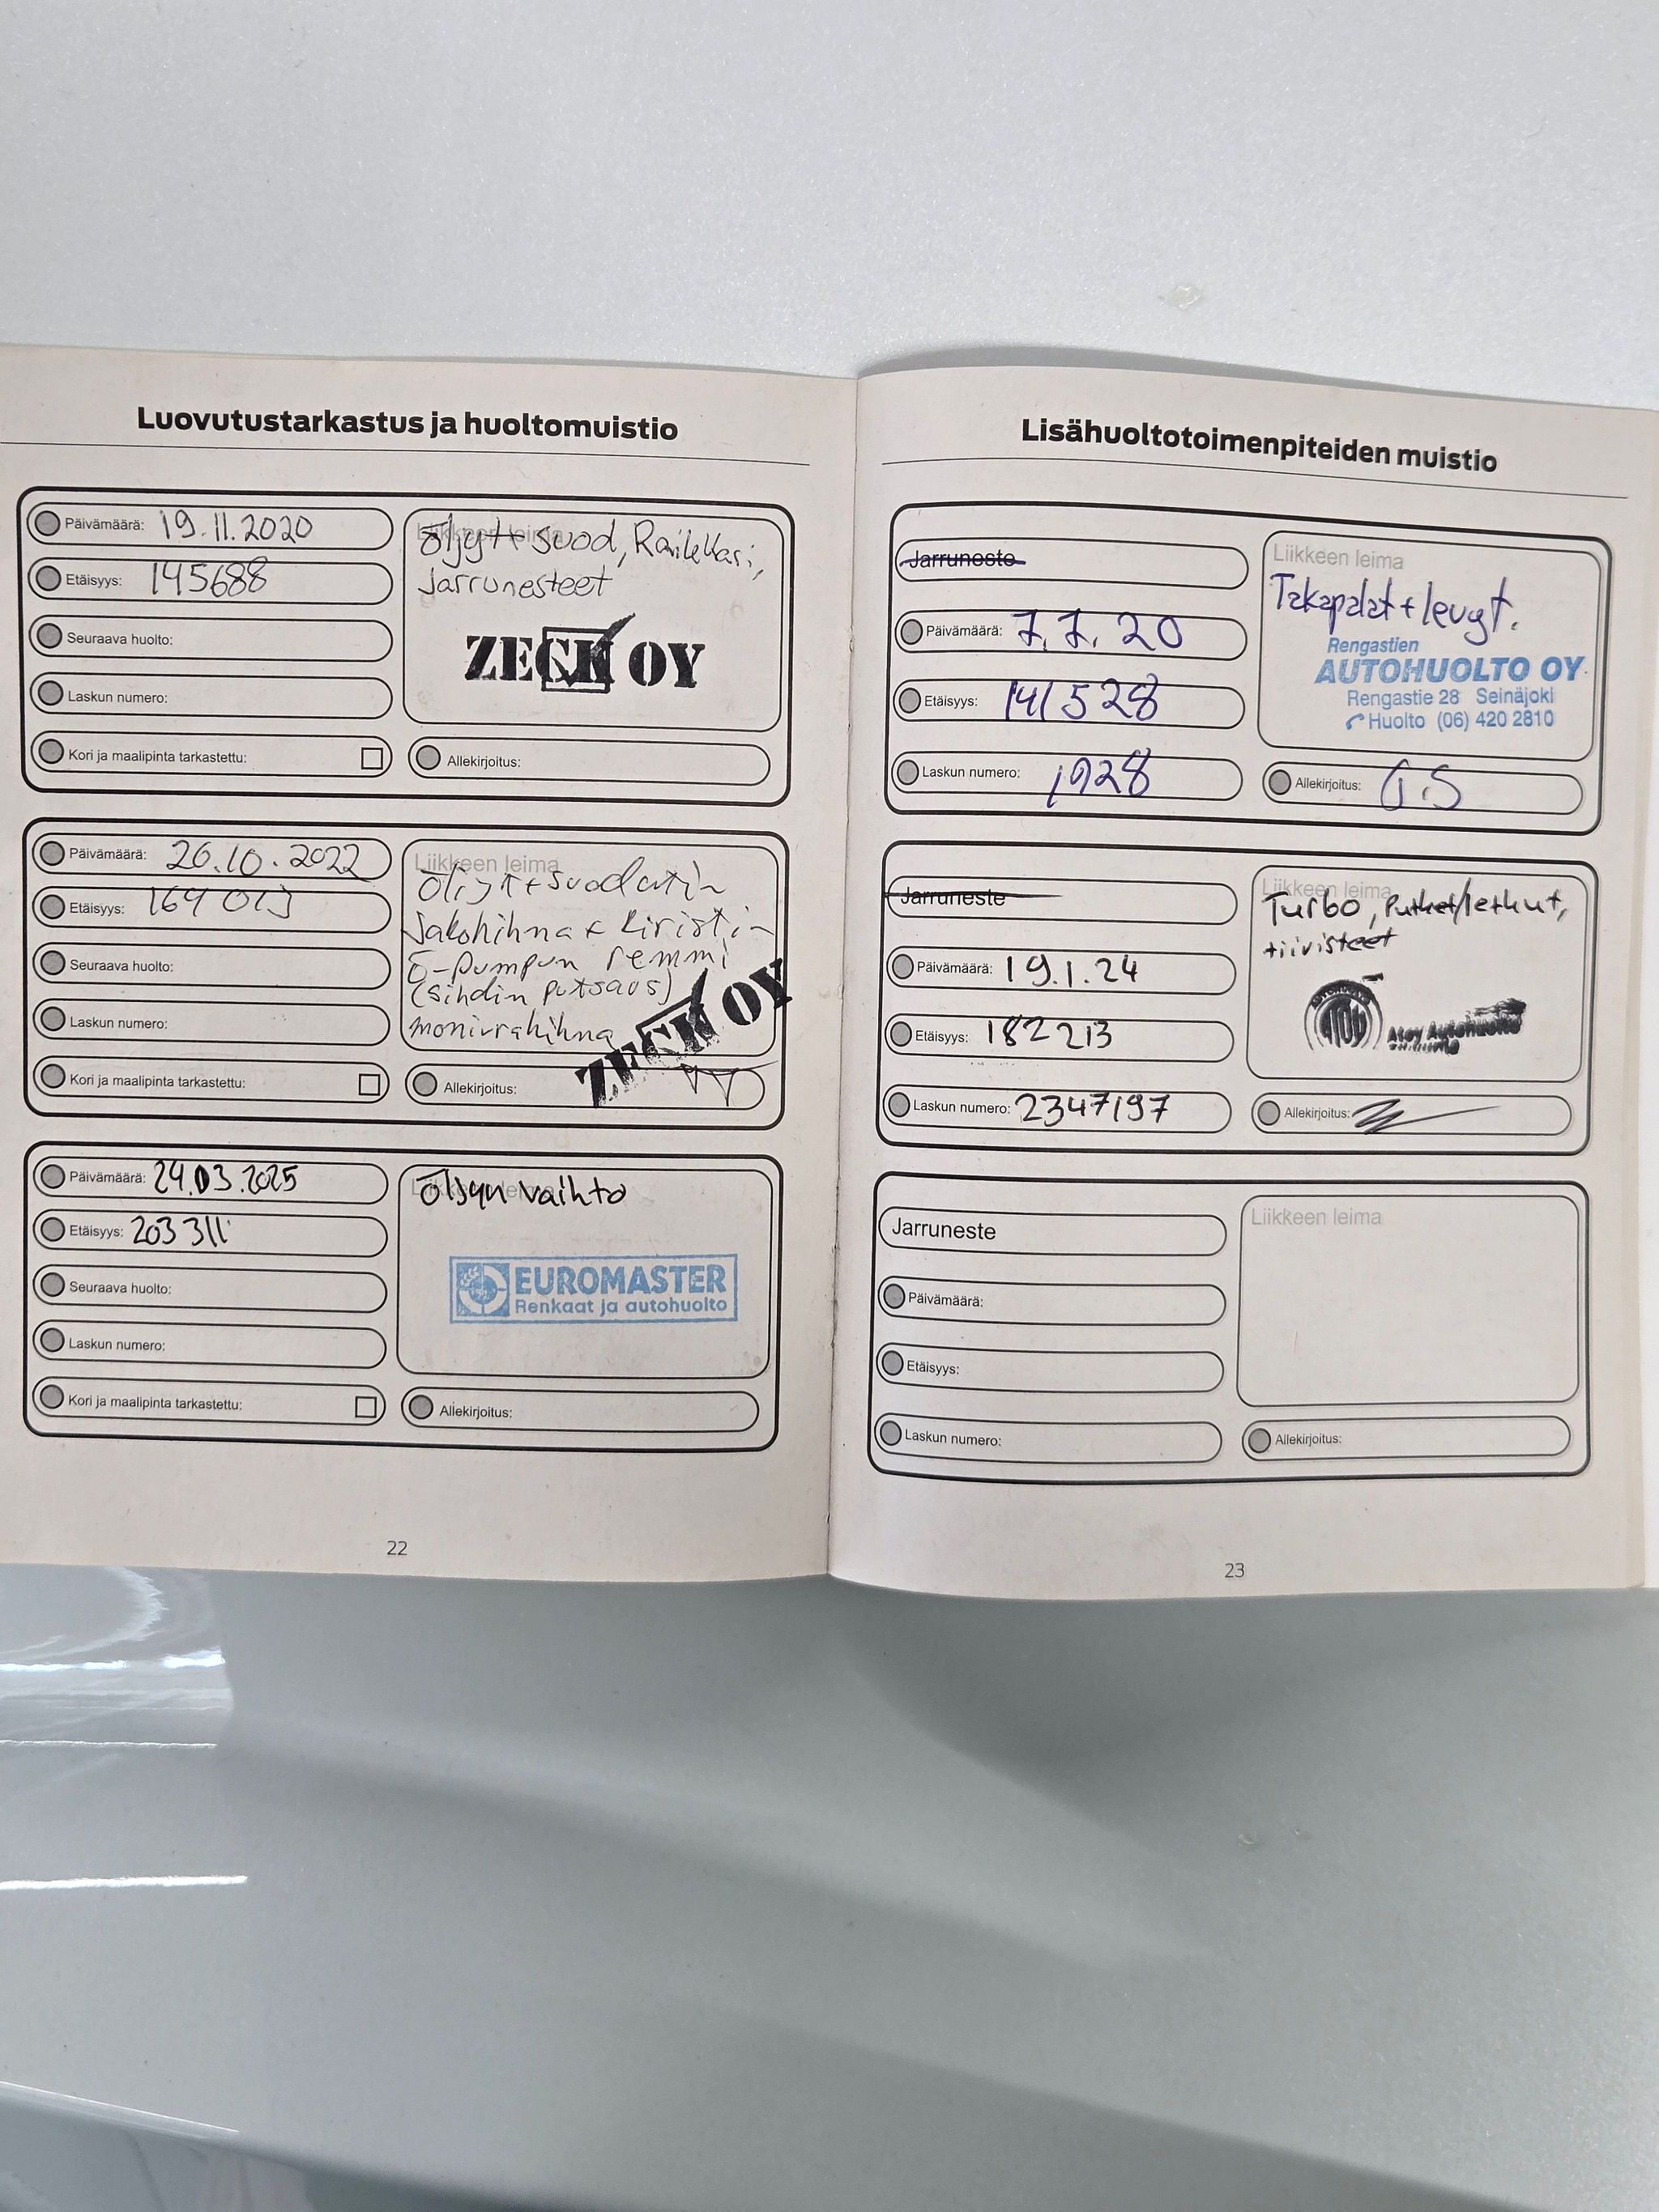 Luovutustarkastus ja huoltomuistio
Päivämäärä: 19.11.2020
Etäisyys: 145688
Seuraava huolto:
Laskun numero:
Kori ja maalipinta tarkastettu:
Liikkeen leima
Öljyt + suod, Raitiskasi,
Jarrunesteet
ZECK OY
Allekirjoitus:
Päivämäärä: 26.10.2022
Etäisyys: 169013
Seuraava huolto:
Laskun numero:
Kori ja maalipinta tarkastettu:
Liikkeen leima
Öljyt + suodatin
Jakohihna + kiristin
Ö-pumpun remmi
(sihdin putsaus)
monivrahihna
ZECK OY
Allekirjoitus:
Päivämäärä: 24.03.2025
Etäisyys: 203311
Seuraava huolto:
Laskun numero:
Kori ja maalipinta tarkastettu:
Liikkeen leima
Öljyn vaihto
EUROMASTER
Renkaat ja autohuolto
Allekirjoitus:
22
Lisähuoltotoimenpiteiden muistio
Jarruneste
Päivämäärä: 7.7.20
Etäisyys: 141528
Laskun numero: 1928
Liikkeen leima
Takapalat + levyt.
Rengastien
AUTOHUOLTO OY
Rengastie 28 Seinäjoki
Huolto (06) 420 2810
Allekirjoitus:
Jarruneste
Päivämäärä: 19.1.24
Etäisyys: 182213
Laskun numero: 2347197
Liikkeen leima
Turbo, Putket/letkut,
tiivisteet
Atoy Autohuolto
Allekirjoitus:
Jarruneste
Päivämäärä:
Etäisyys:
Laskun numero:
Liikkeen leima
Allekirjoitus:
23